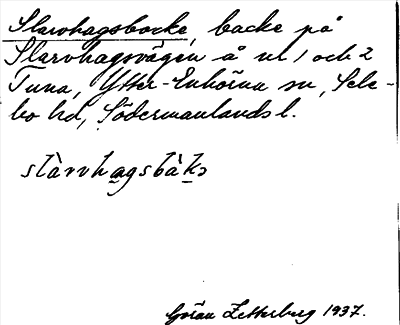 Slarvhagsbacke, backe på
Slarvhagsvägen å nr 1 och 2
Tuna, Ytter-Enhörna sn, Sele-
bo hd, Södermanlands l.
slàrvhagsbàkɔ
Göran Zetterberg 1937.